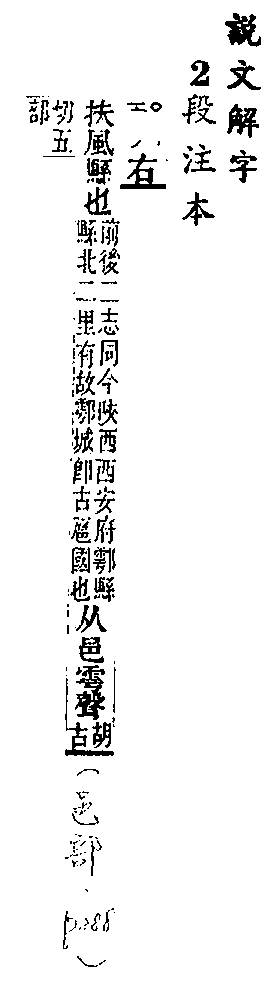 說文解字
2段注本
二。八右
扶風縣也前後二志同今陝西西安府鄠縣
縣北二里有故鄠城卽古扈國也从邑雩聲胡古
切五
部
(邑部.
p288)